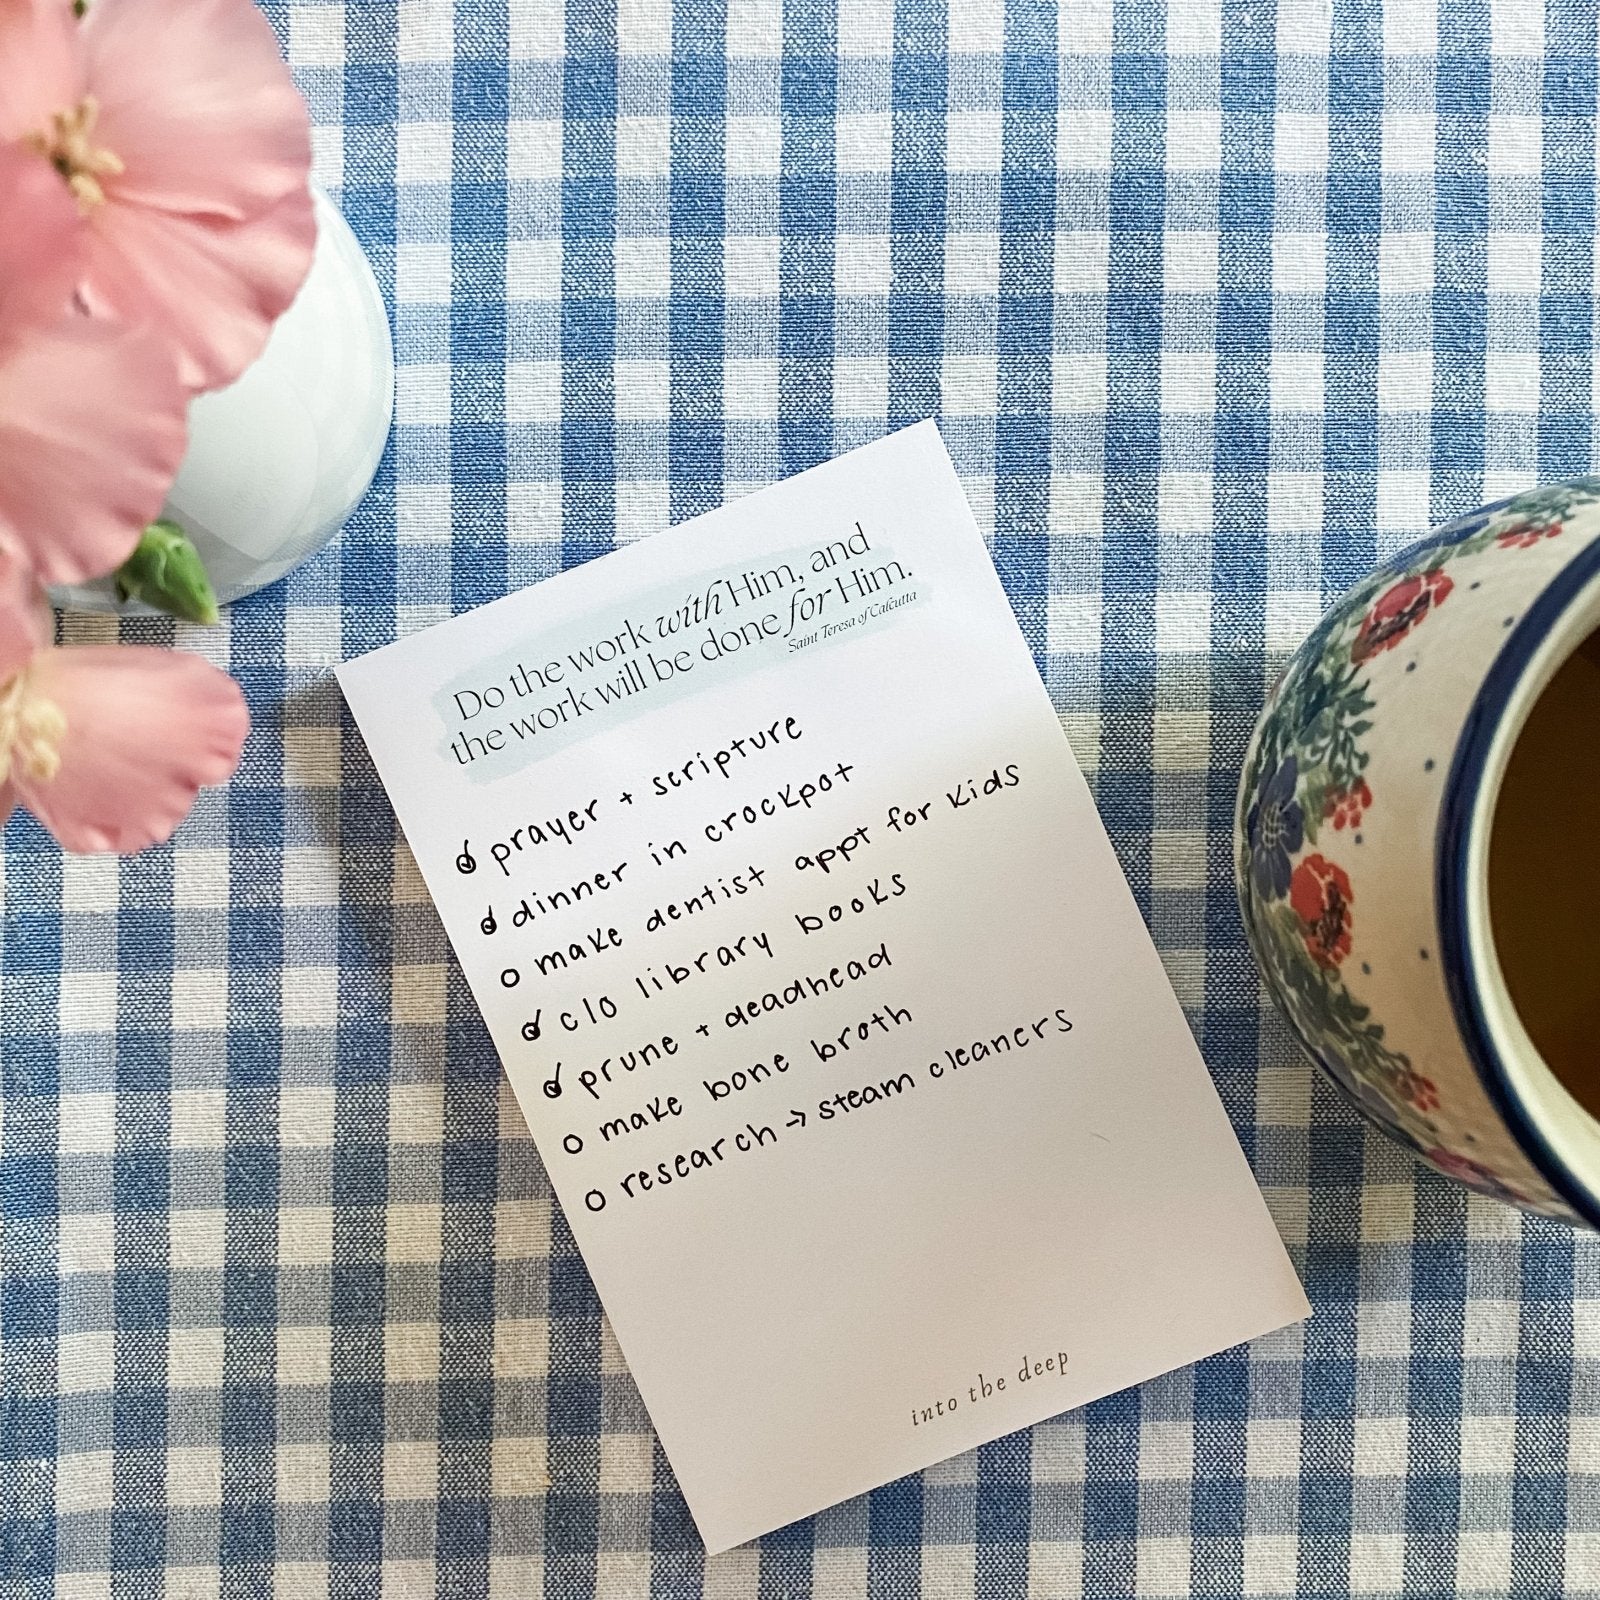 Do the work with Him, and
the work will be done for Him.
Saint Teresa of Calcutta
prayer + scripture
dinner in crockpot
make dentist appt for kids
c/o library books
prune + deadhead
make bone broth
research → steam cleaners
into the deep